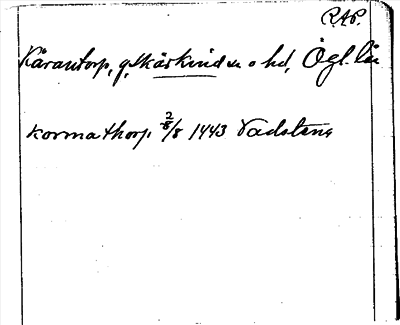 R.A.P.
Kärantorp, g. Skärkind sn o hd, Ögl. län
kormathorp 2/8 1443 Vadstena